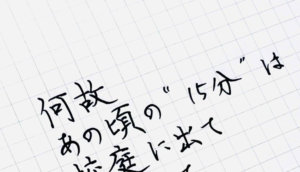 何故
あの頃の“15分”は
校庭に出て